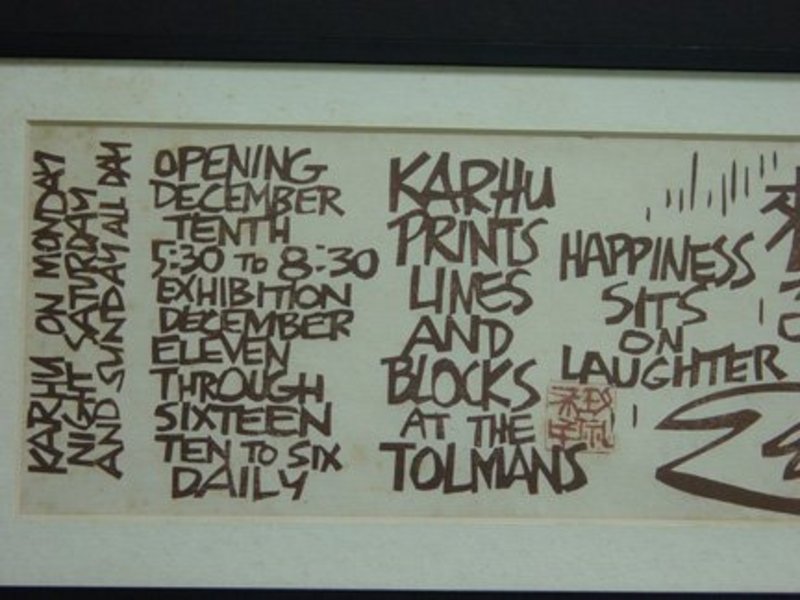 KARHU ON MONDAY
NIGHT SATURDAY
AND SUNDAY ALL DAY
OPENING
DECEMBER
TENTH
5:30 TO 8:30
EXHIBITION
DECEMBER
ELEVEN
THROUGH
SIXTEEN
TEN TO SIX
DAILY
KARHU
PRINTS
LINES
AND
BLOCKS
AT THE
TOLMANS
HAPPINESS
SITS
ON
LAUGHTER